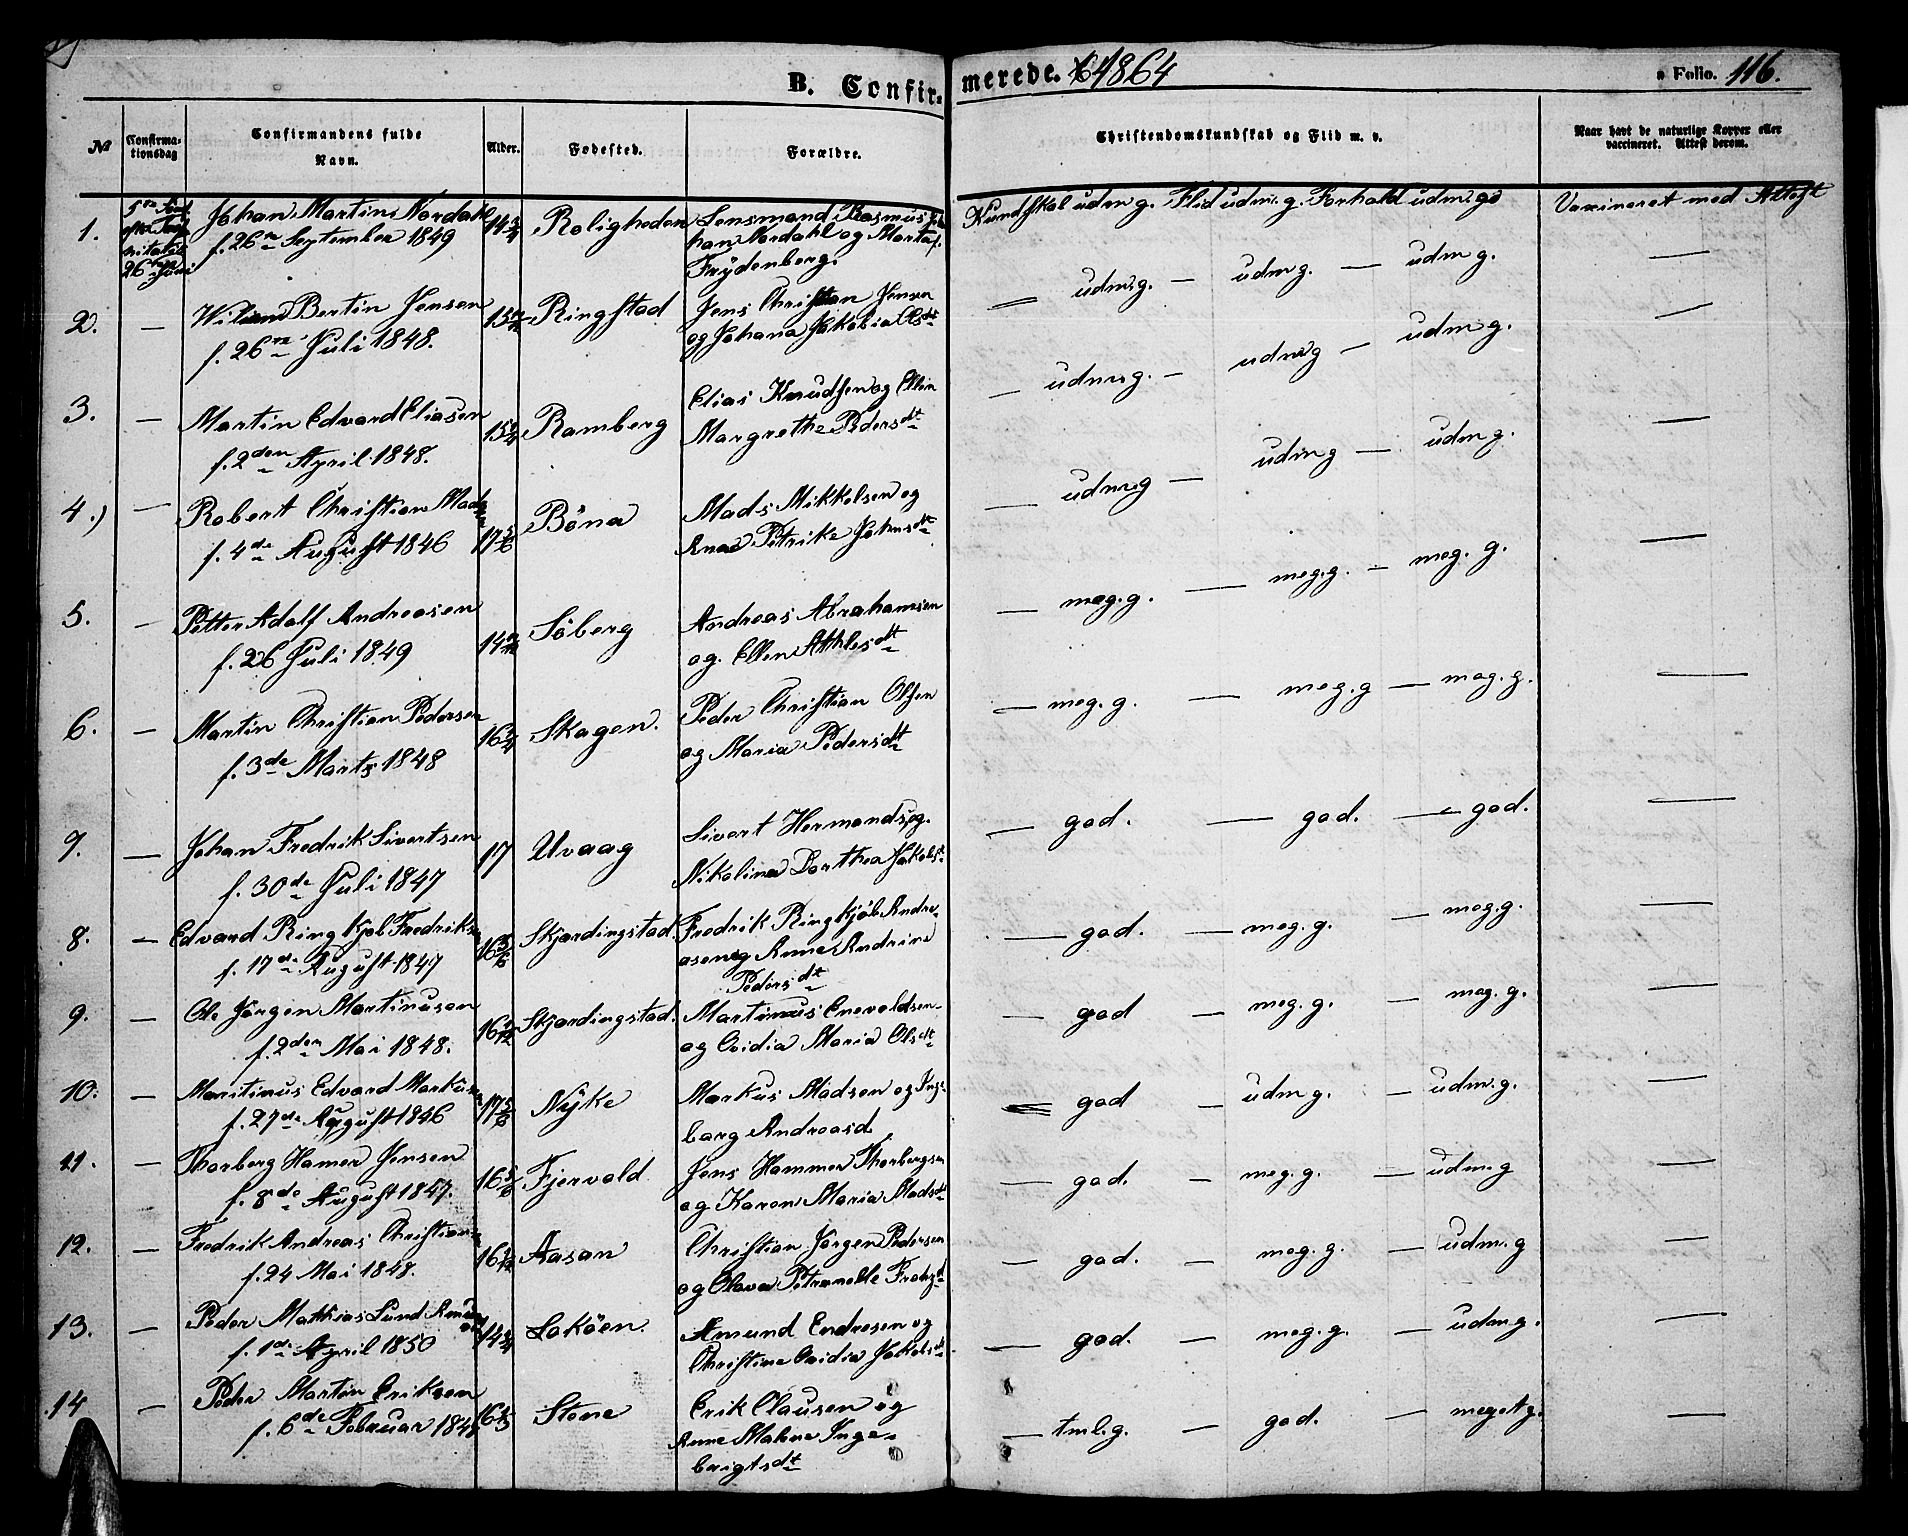 B. Confirmerede. 1864
a Folio. 116.
№ Confirmationsdag Confirmandens fulde Navn. Alder. Fodested. Forældre. Christendomskundskab og Flid m. v. Naar havt de naturlige Kopper eller vaccineret. Attest derom.
1. 5te Sønd. efter Trinitatis 26de Juni
Johan Martin Nordahl
f. 26de September 1849
14 3/4 Roligheden
Lensmand Rasmus Johan Nordahl og Marta f.
Frydenberg.
Kundskab udm. g. Flid udm. g. Forhold udm. gd
Vaxineret med Attest
2. — Bertin Jensen
f. 26de Juli 1848.
Ringstad
Jens Christian Jensen
og Johana Jakobia Olsdt
— udm. g. — udm g. — udm g. —
3. — Martin Edvard Eliasen
f. 2den April 1848.
Ramberg
Elias Knudsen og Ellen
Margrethe Pedersdt
— udm. g. — udm g — udm g. —
4.) — Robert Christian Madsen
f. 4de August 1846
17 5/6 Böna
Mads Mikkelsen og
Ana Petrike Johnsdt
— udm. g — udm g — udm g. —
5. — Petter Adolf Andreasen
f. 26 Juli 1849
Söberg
Andreas Abrahamsen
og Ellen Athlesdt
— meg. g. — meg. g. — meg. g. —
6. — Martin Christian Pedersen
f. 3de Marts 1848
Skagen.
Peder Christian Olsen
og Maria Pedersdt
— meg. g. — meg. g — meg. g. —
7. — Johan Fredrik Sivertsen
f. 30de Juli 1847
17 Uvaag
Sivert Hermands. og
Nikolina Dorthea Jakobsdt
— god. — god. — god. —
8. — Edvard Ringkjøb Fredriksen
f. 17de August 1847
16 5/6 Skjerdingstad.
Fredrik Ringkjøb Andreasen og Anne Andrine
Pedersdt
— god. — meg. g. — meg. g. —
9. — Ole Jørgen Martinusen
f. 2den Mai 1848.
Skjerdingstad.
Martinus Enevoldsen
og Ovidia Maria Olsdt
— god — meg. g. — meg. g. —
10. — Martinus Edvard Markusen
f. 27de August 1846
17 5/6 Nyke
Markus Madsen og Ingeborg Andreasd.
— god — udm g. — udm. g. —
11. — Thorberg Hamer Jensen
f. 8de August 1847.
16 5/6 Fjervold
Jens Hammer Thorbergsen
og Karen Maria Madsdt
— god. — meg. g. — udm. g —
12. — Fredrik Andreas Christiansen
f. 24 Mai 1848.
Aasan
Christian Jørgen Pedersen
og Olava Petrnelle
— god. — meg. g. — udm. g —
13. — Peder Mathias Lund Amundsen
f. 1de April 1850
Laköen.
Amund Endresen og
Christine Ovidia Jakobsdt
— god. — meg. g. — udm g. —
14 — Peder Martin Eriksen
f. 6de Februar 1848
16 1/3 Stene
Erik Clausen og
Anne Malene Ingebrigtsdt
— tml. g. — god. — meget g. —